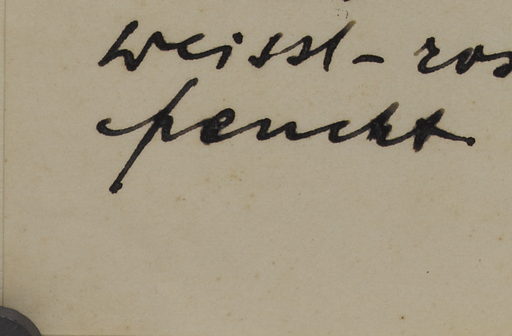 weissl-ros
feucht.